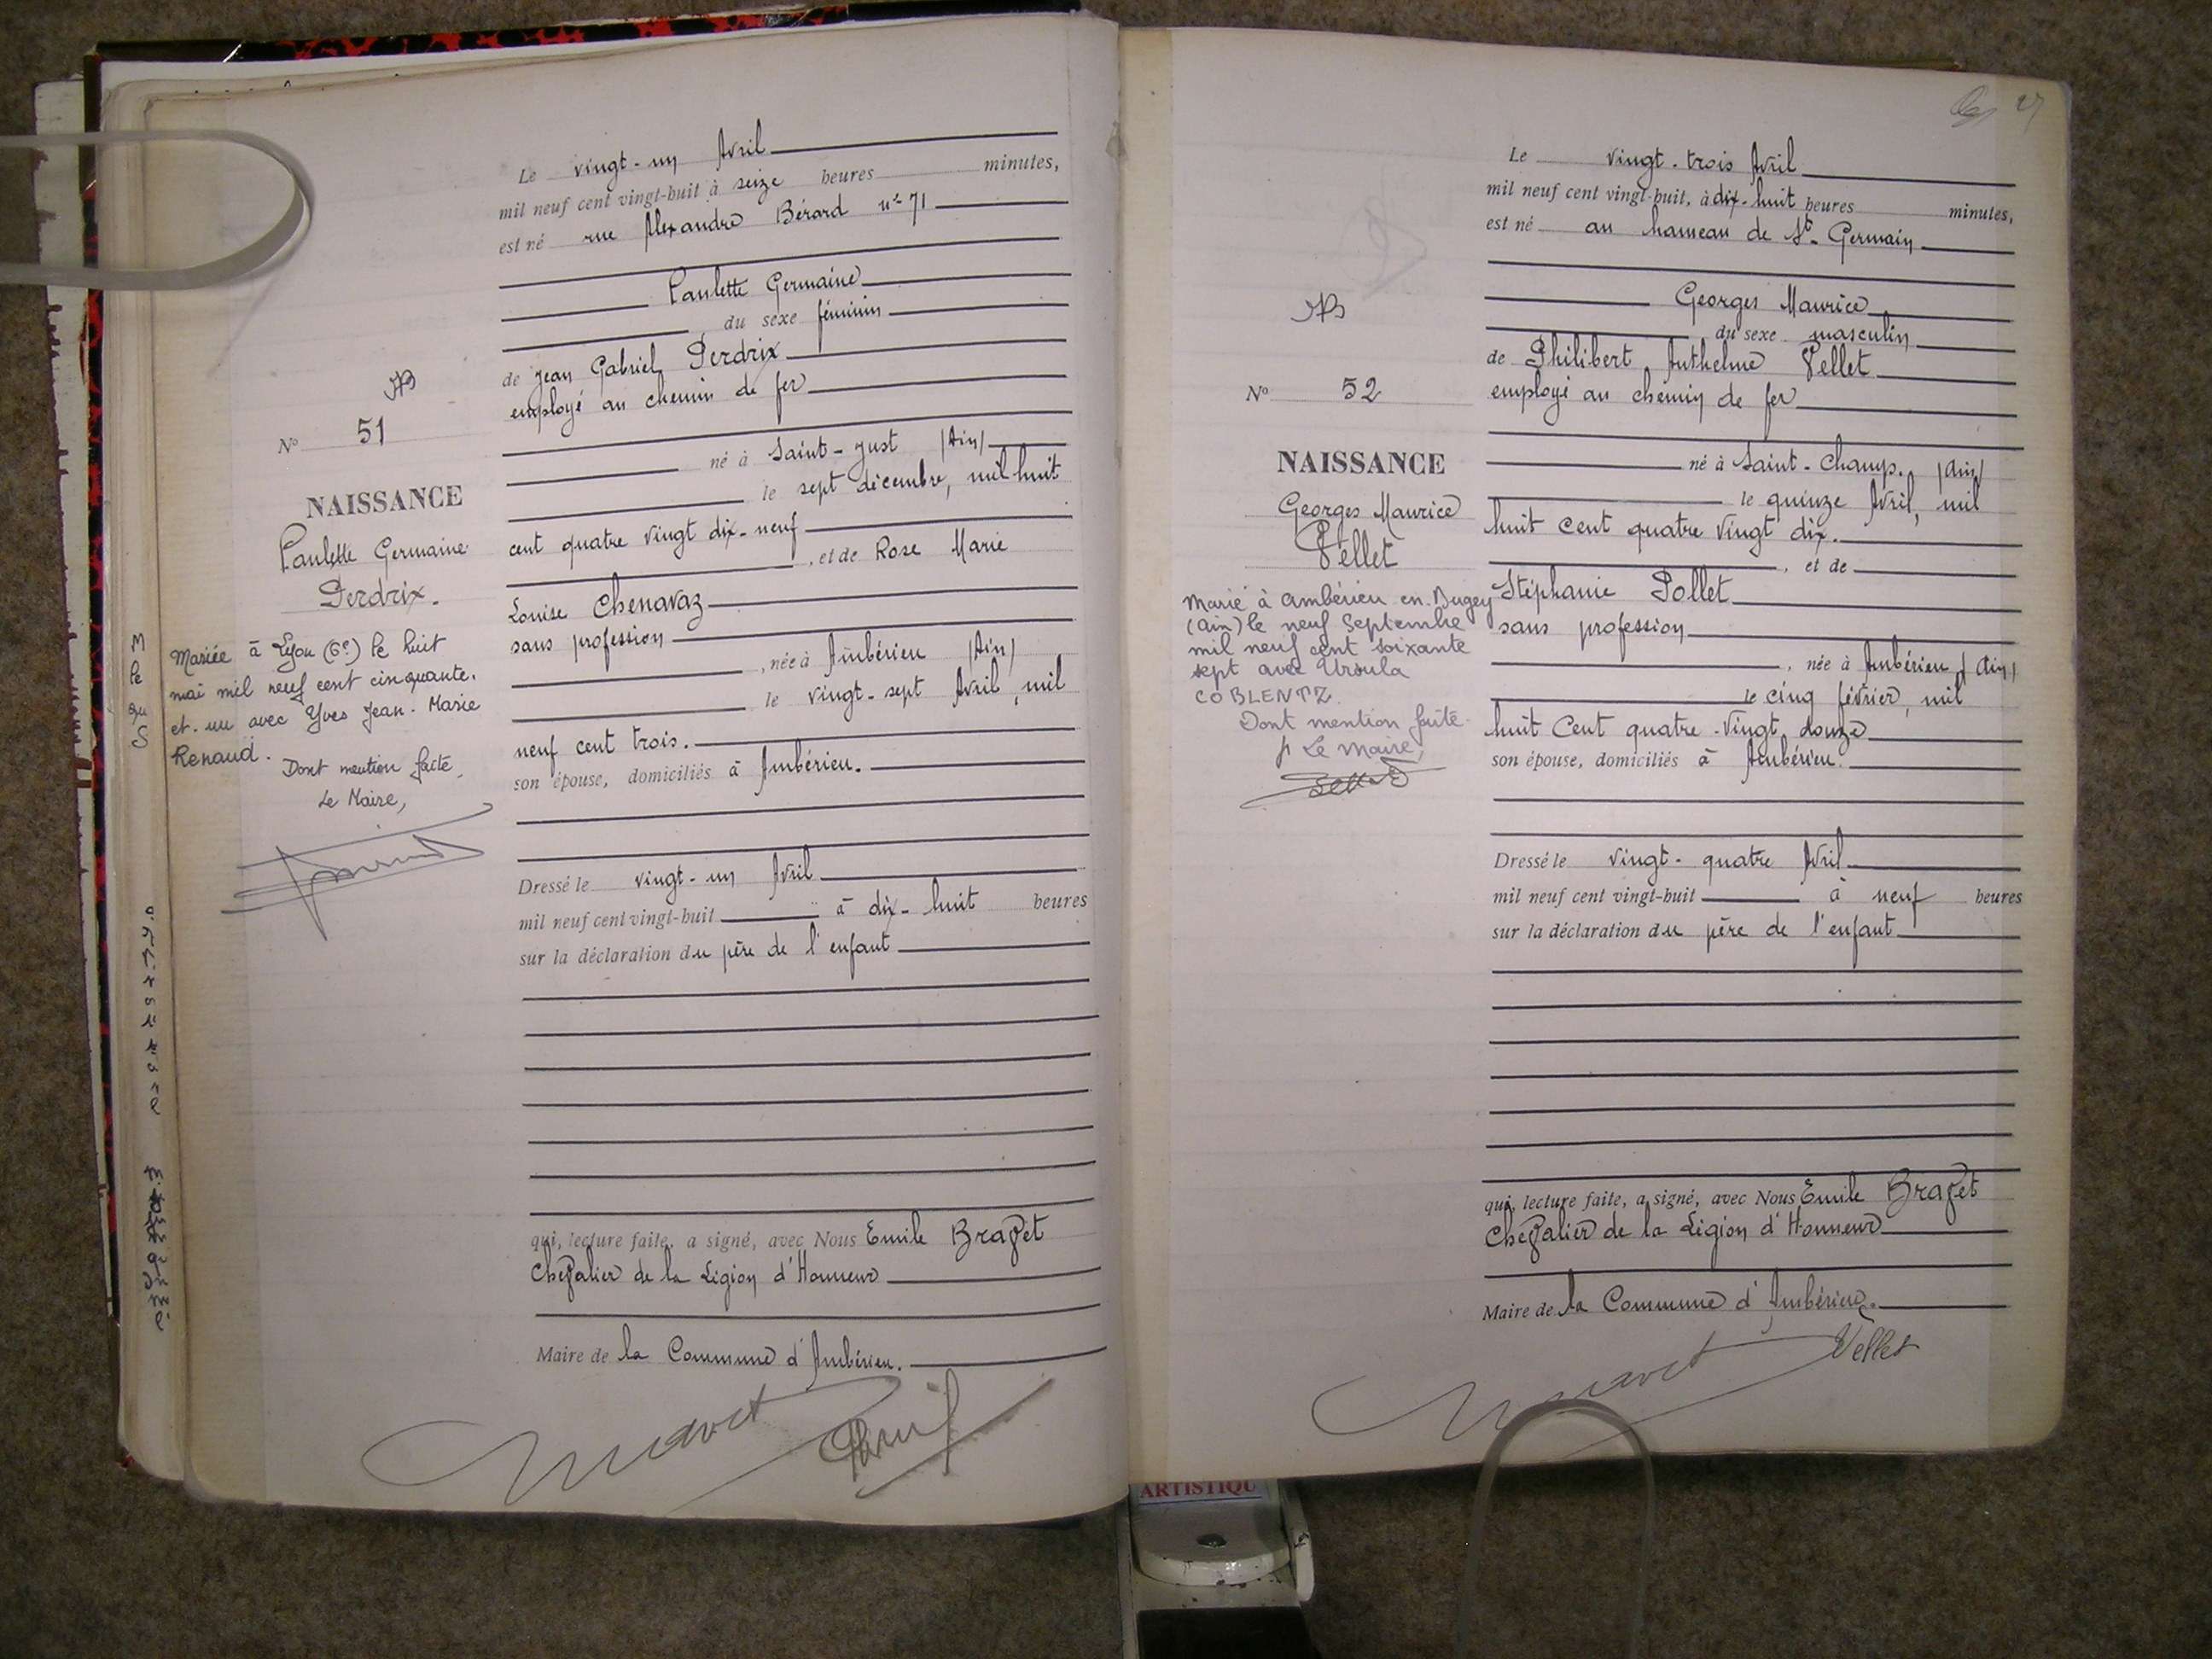 Le vingt-un Avril
mil neuf cent vingt-huit à seize heures minutes,
est né rue Alexandre Bérard n° 71
Paulette Germaine
du sexe féminin
de Jean Gabriel Perdrix
employé au chemin de fer
né à Saint-Just (Ain)
le sept décembre, mil huit
cent quatre vingt dix-neuf
, et de Rose Marie
Louise Chenavaz
sans profession
, née à Ambérieu (Ain)
le vingt-sept Avril, mil
neuf cent trois.
son épouse, domiciliés à Ambérieu.
Dressé le vingt-un Avril
mil neuf cent vingt-huit à dix-huit heures
sur la déclaration du père de l'enfant
qui, lecture faite, a signé, avec Nous Emile Bravet
Chevalier de la Légion d'Honneur
Maire de la Commune d'Ambérieu.
N° 51
NAISSANCE
Paulette Germaine
Perdrix.
Mariée à Lyon (6e) le huit
mai mil neuf cent cinquante.
et. un avec Yves Jean-Marie
Renaud.
Dont mention faite,
Le Maire,
27
Le vingt-trois Avril
mil neuf cent vingt-huit, à dix-huit heures minutes,
est né au hameau de St. Germain
Georges Maurice
du sexe masculin
de Philibert Anthelme Vellet
employé au chemin de fer
né à Saint-Champ. (Ain)
le quinze Avril, mil
huit cent quatre vingt dix.
, et de
Stéphanie Pollet
sans profession
, née à Ambérieu (Ain)
le cinq février, mil
huit Cent quatre-vingt douze
son épouse, domiciliés à Ambérieu.
Dressé le vingt-quatre Avril
mil neuf cent vingt-huit à neuf heures
sur la déclaration du père de l'enfant
qui, lecture faite, a signé, avec Nous Emile Bravet
Chevalier de la Légion d'Honneur
Maire de la Commune d'Ambérieu.
Vellet
N° 52
NAISSANCE
Georges Maurice
Vellet
Marié à Ambérieu en Bugey
(Ain) le neuf Septembre
mil neuf cent soixante
sept avec Ursula
COBLENTZ.
Dont mention faite.
Le Maire,
ARTISTIQU